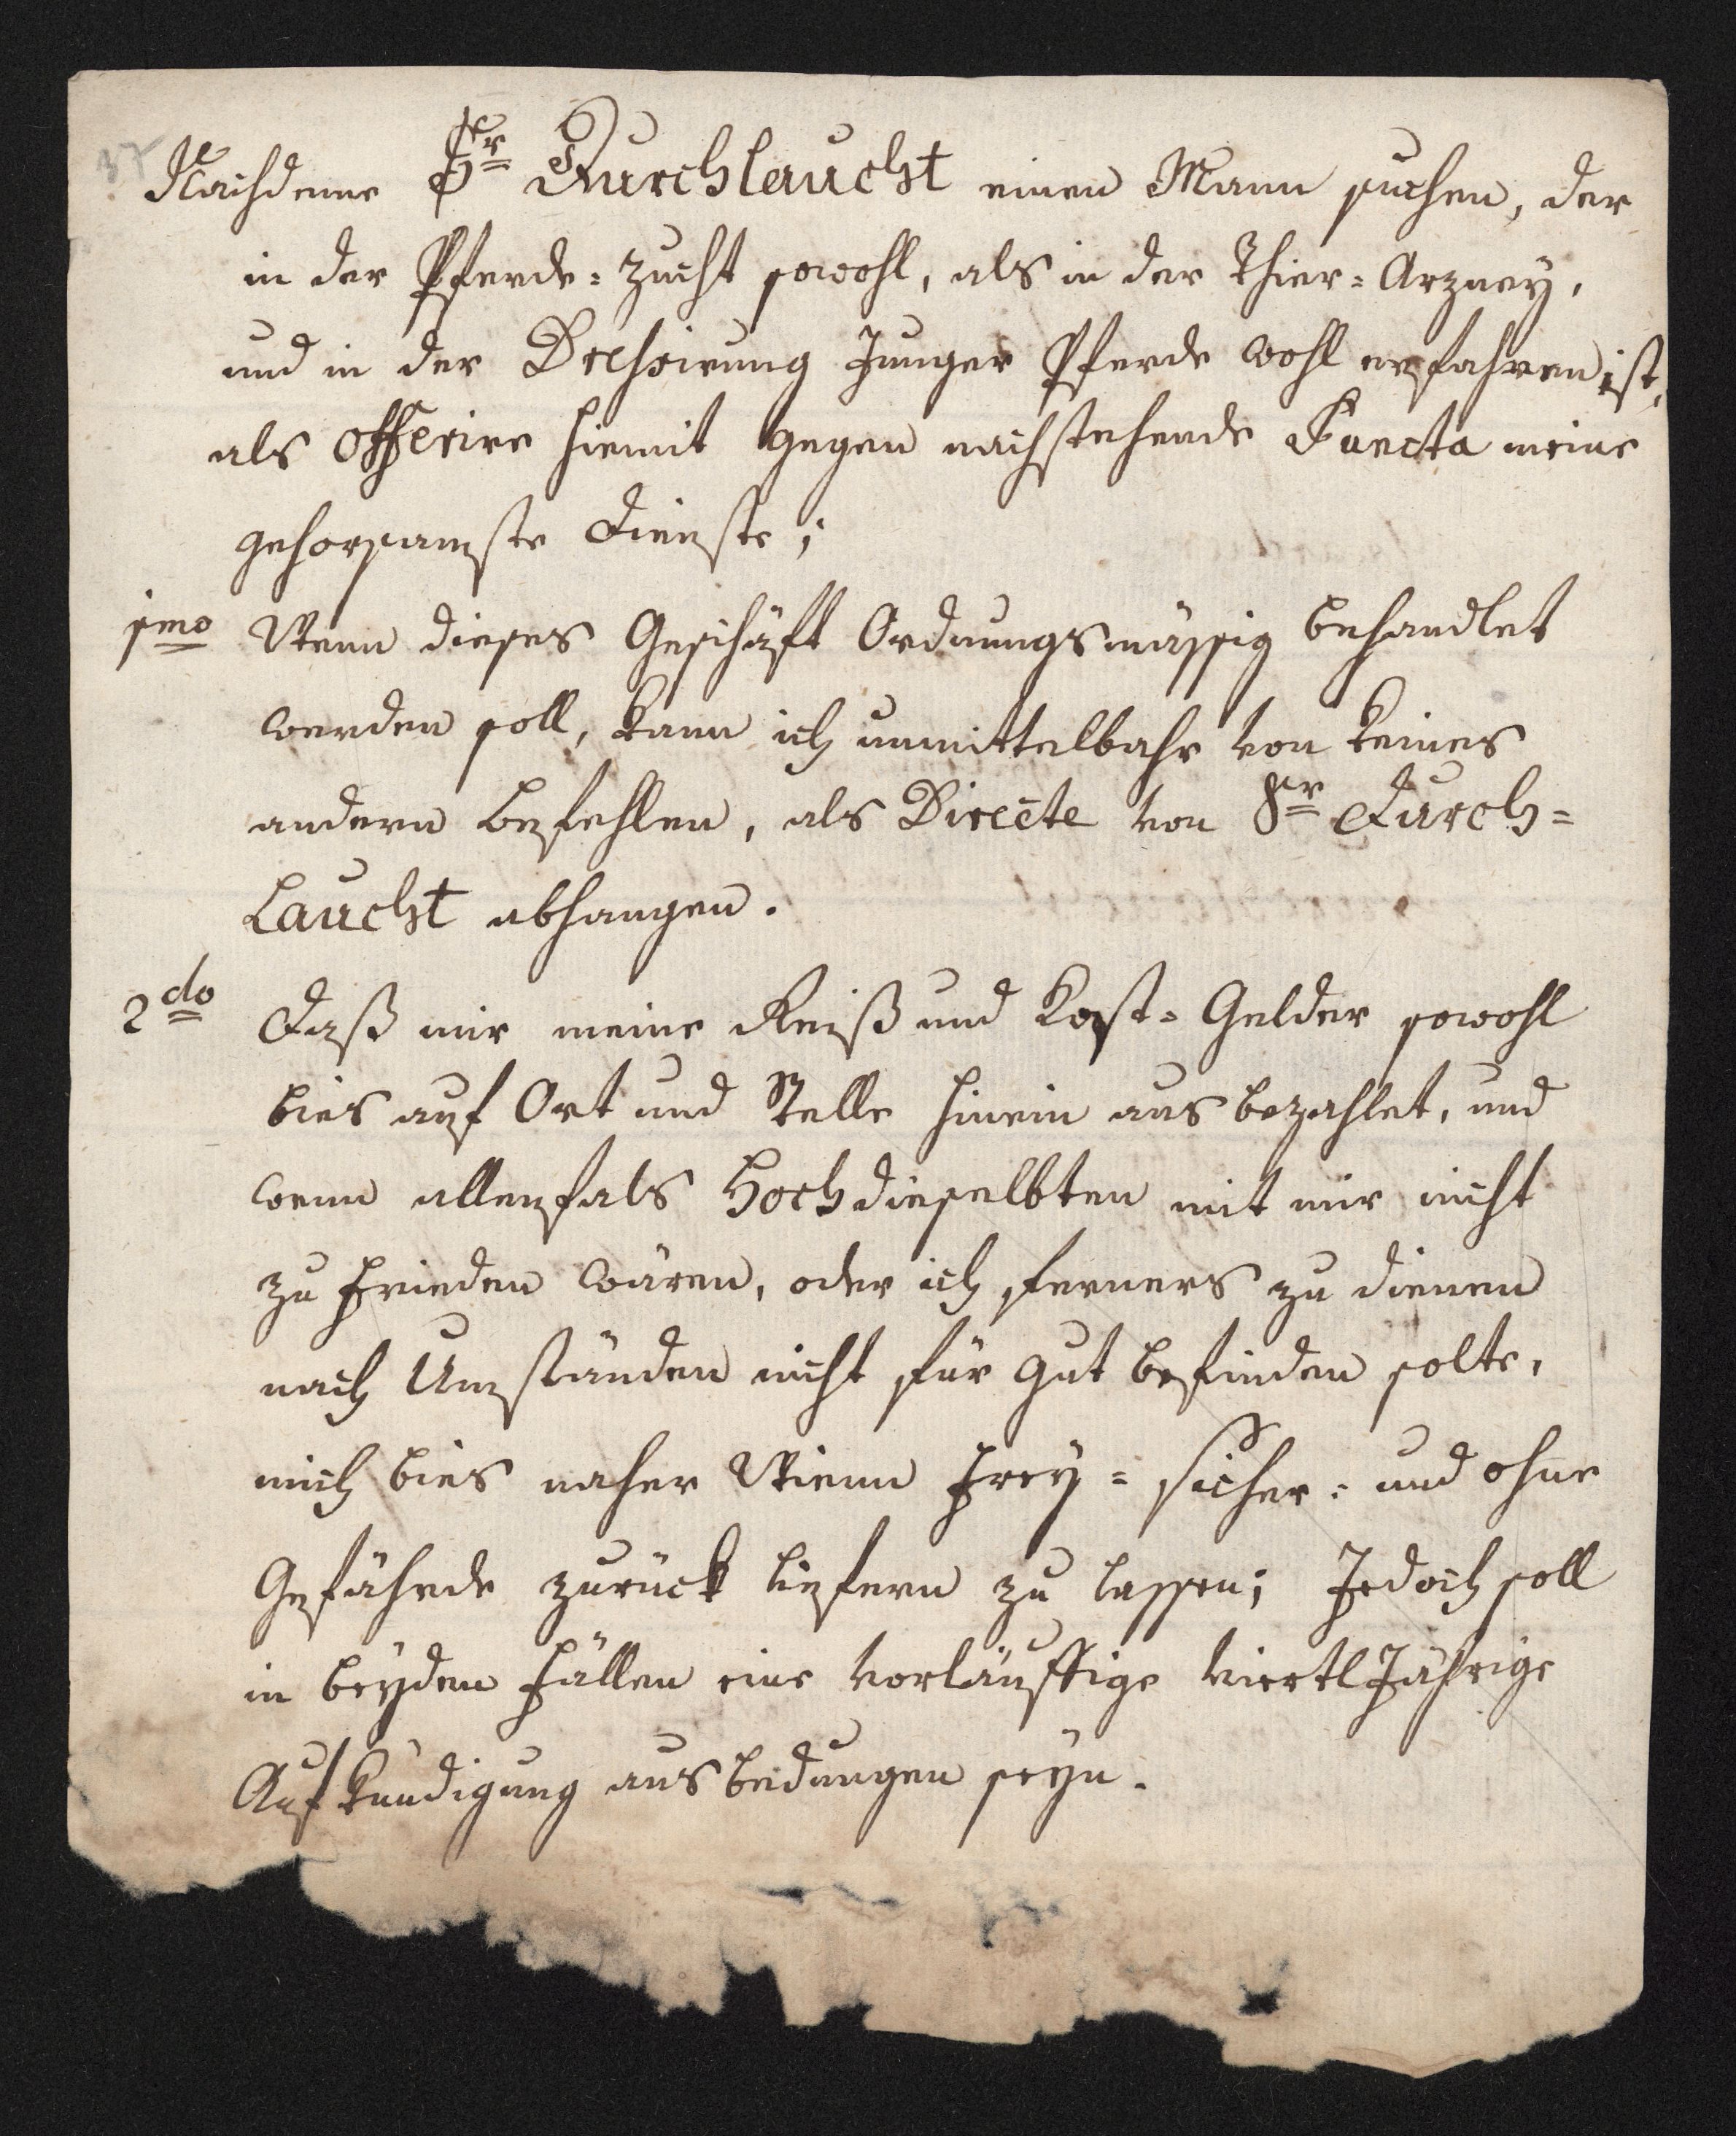 37
Nachdeme Sr Durchlaucht einen Mann suchen, der
in der Pferde=Zucht sowohl, als in der Thier=Arzney,
und in der Dressirung Junger Pferde wohl erfahren ist,
als Offerire hiemit gegen nachstehende Puncta meine
gehorsamste Dienste;
1mo Wenn dieses Geschäft Ordnungsmässig behandlet
werden soll, kann ich unmittelbahr von keines
andern Befehlen, als Directe von Sr Durch=
Laucht abhangen.
2do Daß mir meine Reiß und Kost=Gelder sowohl
bies auf Ort und Stelle hinein ausbezahlet, und
wenn allenfals Hochdieselbten mit mir nicht
zu frieden wären, oder ich ferners zu dienen
nach Umständen nicht für gut befinden solte,
mich bies naher Wienn frey= sicher= und ohne
Gefährde zurück liefern zu lassen; Jedoch soll
in beyden Fällen eine vorläuffige viertl Jährige
Aufkündigung ausbedungen seyn.